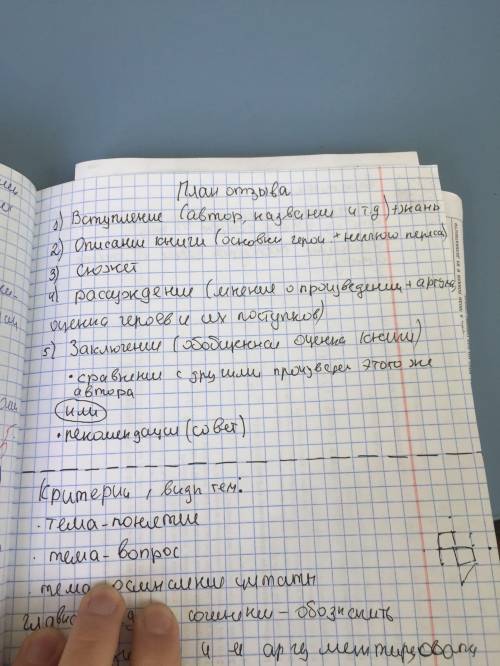 План отзыва
1) Вступление (автор, название и т.д) + жанр
2) Описание книги (основные герои +
3) Сюжет
4) рассуждение (мнение о произведении + аргум,
оценка героев и их поступков)
5) Заключение (обобщённая оценка книги)
• сравнение с другими произвед этого же
автора
или
• рекомендации (совет)
Критерии, виды тем:
• тема-понятие
• тема-вопрос
• тема осмысление цитаты
сочинении - обозначить
и её аргументировать